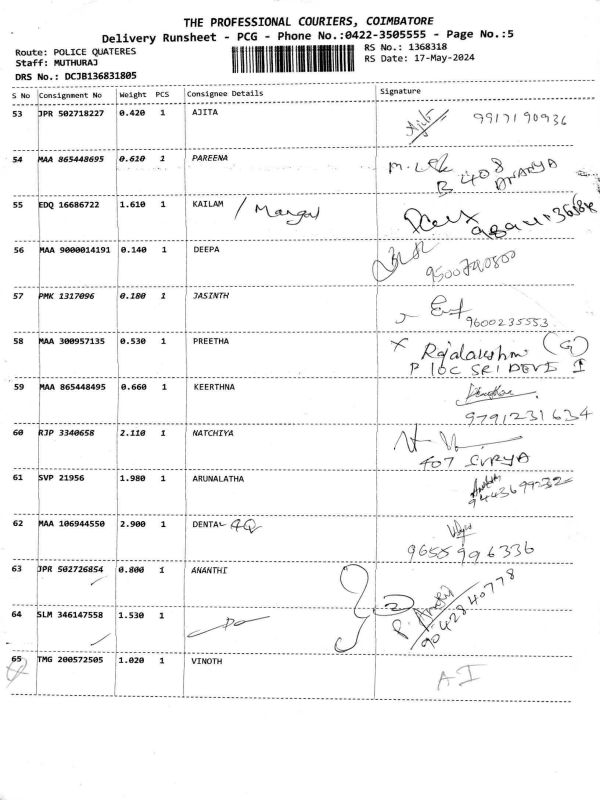 THE PROFESSIONAL COURIERS, COIMBATORE
Delivery Runsheet - PCG - Phone No.:0422-3505555 - Page No.:5
Route: POLICE QUATERES
Staff: MUTHURAJ
DRS No.: DCJB136831805
RS No.: 1368318
RS Date: 17-May-2024
S No Consignment No Weight PCS Consignee Details Signature
53 JPR 502718227 0.420 1 AJITA 9917190936
54 MAA 865448695 0.610 1 PAREENA
B 408
55 EDQ 16686722 1.610 1 KAILAM /
56 MAA 9000014191 0.140 1 DEEPA
57 PMK 1317096 0.180 1 JASINTH
9600235553
58 MAA 300957135 0.530 1 PREETHA X Rajalakshmi (G)
P 10C SRI DEVI I
59 MAA 865448495 0.660 1 KEERTHNA
9791231634
60 RJP 3340658 2.110 1 NATCHIYA
407 SURYA
61 SVP 21956 1.980 1 ARUNALATHA
9443699232
62 MAA 106944550 2.900 1 DENTAL
9655996336
63 JPR 502726854 0.800 1 ANANTHI 2
9042840778
64 SLM 346147558 1.530 1 Do
65 TMG 200572505 1.020 1 VINOTH AI